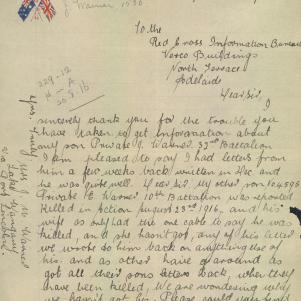 J. Warner 1530
To the
Red Cross Information Bureau
Verco Buildings
North Terrace
Adelaide
Dear Sir, I
sincerely thank you for the trouble you
have taken to get information about
my son Private J. Warner 32nd Battalion
I am pleased to say I had letters from
him a few weeks back written in Dec and
he was quite well. Dear Sir, My other son
Private E Warner 10th Battalion was reported
Killed in Action August 23rd 1916. and his
wife as she had the one cable to say he was
killed, and she hasn't got any of his letters
we wrote so him back or anything else of
his. and as other have around as
got all their sons letters back, when they
have been killed. We are wondering why
we havn't got his. Please could you
229-12
20.3.16
yrs. Truly
Warner
Lake Wangary
via Port Lincoln